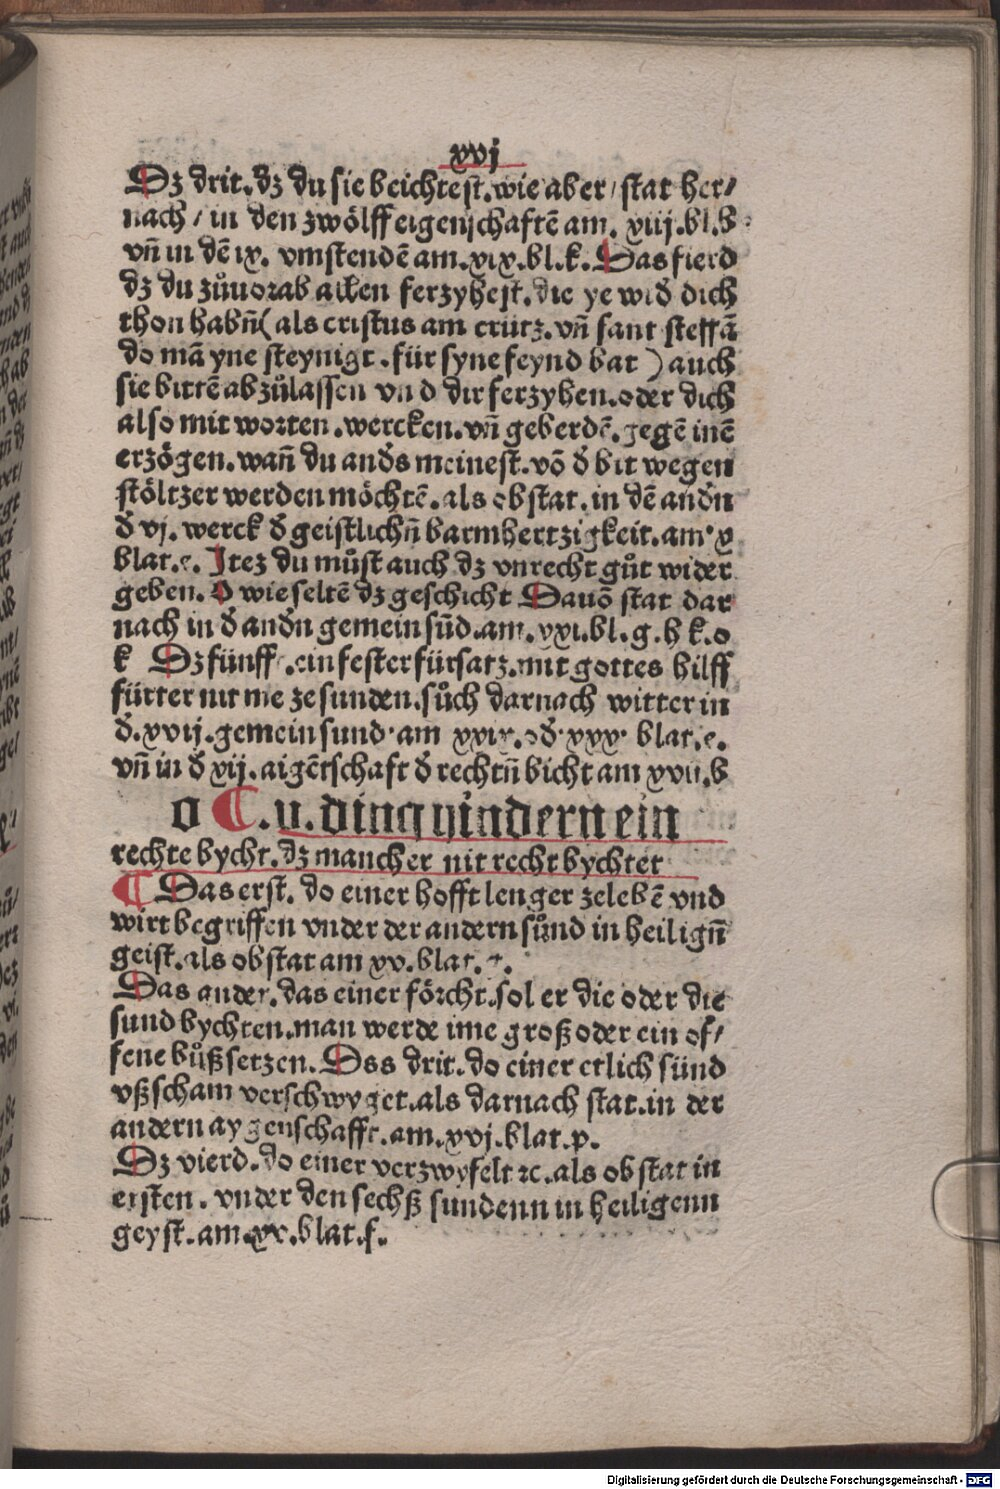 xvj
Dz drit. dz du sie beichtest. wie aber / stat her/
nach / in den zwölff eigenschaftē am. xiij. bl. b
vñ in dē ix. vmstendē am. xix. bl. k. Das fierd
dz du zůuorab allen ferzyhest. die ye wid dich
thon habñ ( als cristus am crütz. vñ sant steffā
do mā yne steynigt. für syne feynd bat ) auch
sie bittē abzůlassen vnd dir ferzyhen. oder dich
also mit worten. wercken. vñ geberdē. gegē inē
erzögen. wañ du anđs meinest. vō đ bit wegen
stöltzer werden möchtē. als obstat. in dē anđn
đ vj. werck đ geistlichñ barmhertzigkeit. am x
blat. e. Itez du můst auch dz vnrecht gůt wider
geben. O wie seltē dz geschicht Dauō stat dar
nach in đ anđn gemein sünd. am. xxi. bl. g. h k. o
k Dz fünff. ein fester fürsatz. mit gottes hilff
fürter nit me ze sunden. sůch darnach witter in
đ. xvij. gemein sund am xxix. ođ xxx blat. e.
vñ in đ xij. aigētschaft đ rechtñ bicht am xvii. b
o ¶. v. ding hindern ein
rechte bycht. dz mancher nit recht bychtet
¶ Das erst. do einer hofft lenger zelebē vnd
wirt begriffen vnder der andern sůnd in heiligñ
geist. als obstat am xv. blat.
Das ander. das einer förcht. sol er die oder die
sund bychten. man werde ime groß oder ein of/
fene bůß setzen. Das drit. do einer etlich sünd
vß scham verschwyget. als darnach stat. in der
andern aygenschafft. am. xvj. blat. p.
Dz vierd. do einer verzwyfelt ꝛc. als obstat in
ersten. vnder den sechß sundenn in heiligenn
geyst. am. xv. blat. f.
Digitalisierung gefördert durch die Deutsche Forschungsgemeinschaft - DFG